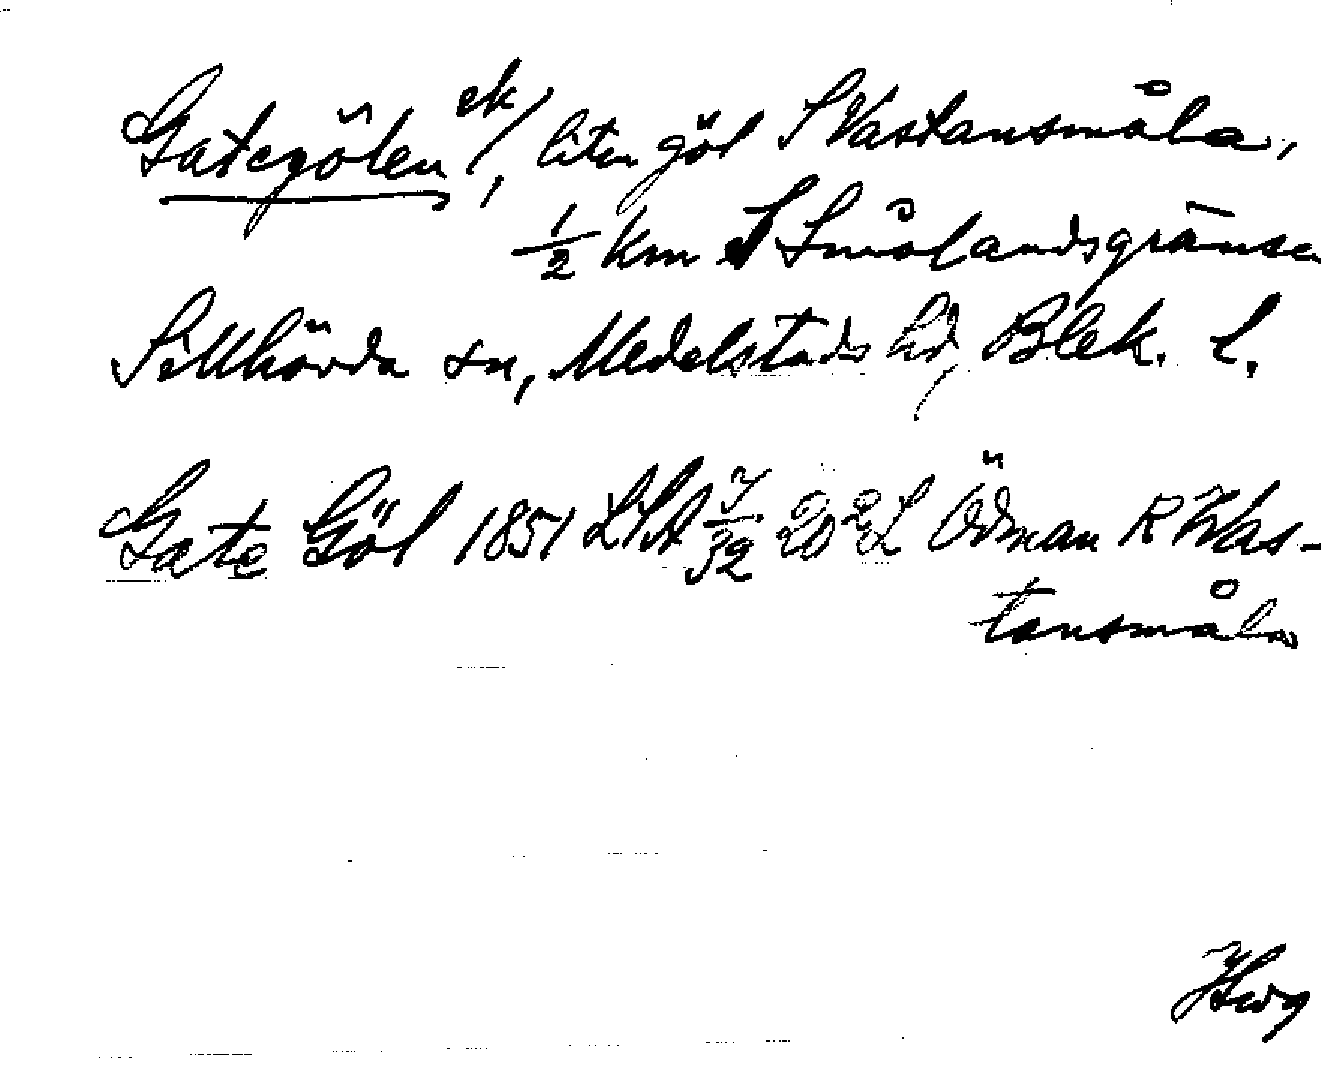 Gategölen ek/, liten göl S Västansmåla,
1/2 km S Smålandsgränsen
Sillhövda sn, Medelstads hd, Blek. l.
Gate Göl 1851 LSA 7/32 Ödman R Wäs-
tansmåla